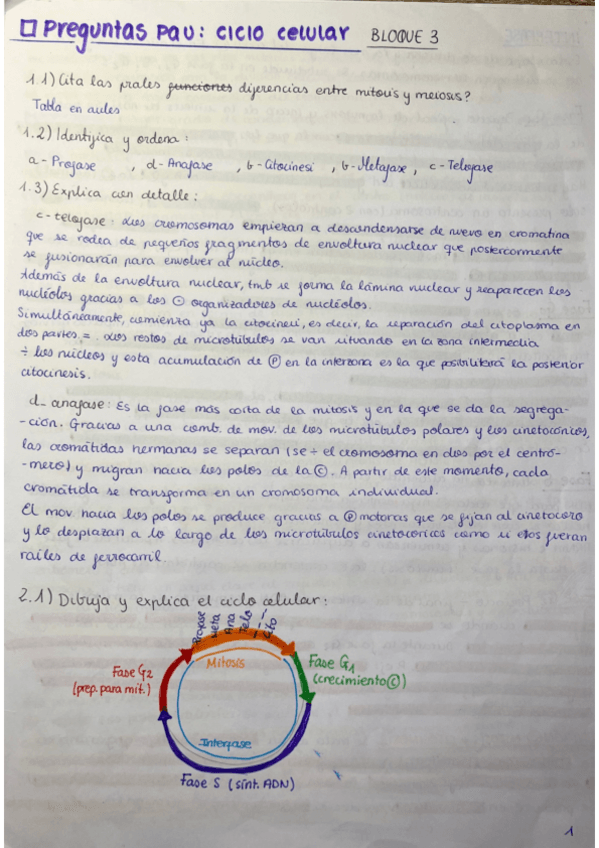 Preguntas PAU: CICLO CELULAR BLOQUE 3
1.1) Cita las prales funciones diferencias entre mitosis y meiosis?
Tabla en aules
1.2) Identifica y ordena:
a- Profase , d- Anafase , b- Citocinesi , b- Metafase , c- Telofase
1.3) Explica cien detalle:
c- telofase: Los cromosomas empiezan a descondensarse de nuevo en cromatina
que se rodea de pequeños fragmentos de envoltura nuclear que posteriormente
se fusionarán para envolver al núcleo.
Además de la envoltura nuclear, tmb se forma la lámina nuclear y reaparecen los
nucléolos gracias a los organizadores de nucléolos.
Simultáneamente, comienza ya la citocinesi, es decir, la separación del citoplasma en
dos partes =. Los restos de microtúbulos se van situando en la zona intermedia
÷ los núcleos y esta acumulación de Ⓟ en la interzona es la que posibilitará la posterior
citocinesis.
d- anafase: Es la fase más corta de la mitosis y en la que se da la segrega-
-ción. Gracias a una comb. de mov. de los microtúbulos polares y los cinetocóricos,
las cromátidas hermanas se separan (se ÷ el cromosoma en dos por el centró-
-mero) y migran hacia los polos de la Ⓒ. A partir de este momento, cada
cromátida se transforma en un cromosoma individual.
El mov. hacia los polos se produce gracias a Ⓟ motoras que se fijan al cinetocoro
y lo desplazan a lo largo de los microtúbulos cinetocóricos como si ellos fueran
railes de ferrocarril.
2.1) Dibuja y explica el ciclo celular:
Profase
Meta
Ana
Telo
Cito
Mitosis
Fase G2
(prep. para mit.)
Fase G1
(crecimiento Ⓒ)
Interfase
Fase S (sínt. ADN)
1